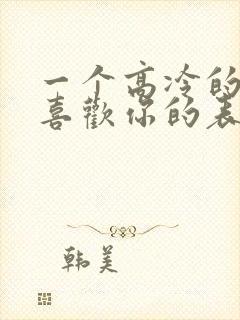 一个高冷的
喜歡你的表
韩美